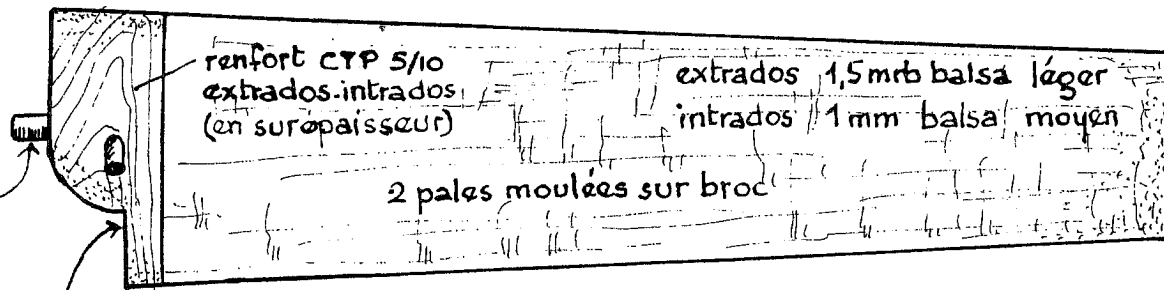 renfort CTP 5/10
extrados-intrados
(en surépaisseur)
extrados 1,5 mm balsa léger
intrados 1 mm balsa moyen
2 pales moulées sur broc